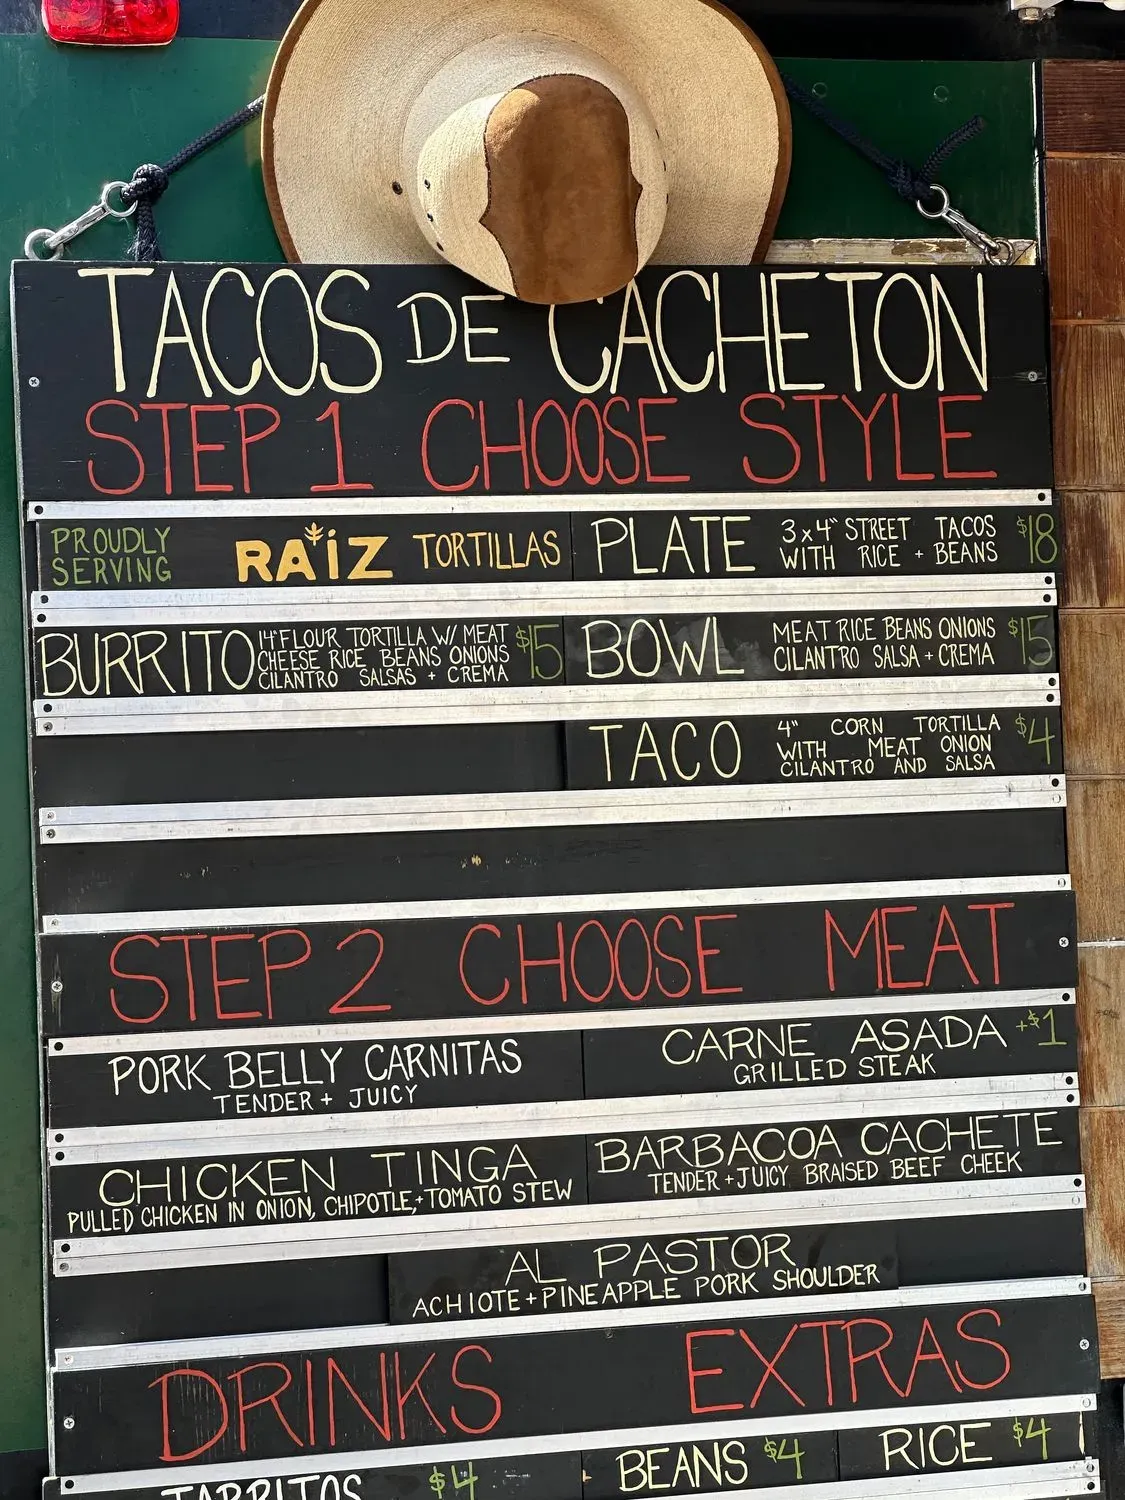 TACOS DE CACHETON
STEP 1 CHOOSE STYLE
PROUDLY
SERVING
RAIZ TORTILLAS
PLATE
3x4" STREET TACOS
WITH RICE + BEANS
$18
BURRITO
14" FLOUR TORTILLA W/ MEAT
CHEESE RICE BEANS ONIONS
CILANTRO SALSAS + CREMA
$15
BOWL
MEAT RICE BEANS ONIONS
CILANTRO SALSA + CREMA
$15
TACO
4" CORN TORTILLA
WITH MEAT ONION
CILANTRO AND SALSA
$4
STEP 2 CHOOSE MEAT
PORK BELLY CARNITAS
TENDER + JUICY
CARNE ASADA +$1
GRILLED STEAK
CHICKEN TINGA
PULLED CHICKEN IN ONION, CHIPOTLE, + TOMATO STEW
BARBACOA CACHETE
TENDER + JUICY BRAISED BEEF CHEEK
AL PASTOR
ACHIOTE + PINEAPPLE PORK SHOULDER
DRINKS
EXTRAS
JARRITOS $4
BEANS $4
RICE $4